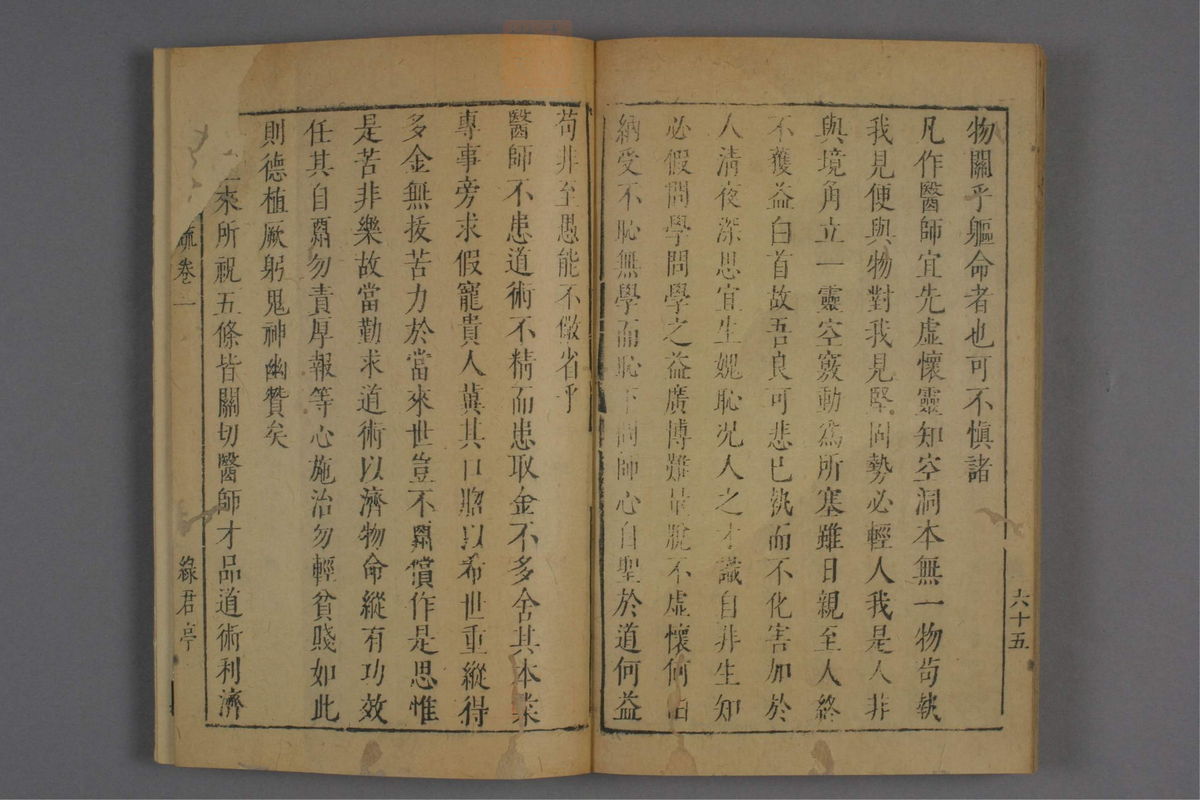 物關乎軀命者也可不慎諸
凡作醫師宜先虛懷靈知空洞本無一物苟執
我見便與物對我見堅固勢必輕人我是人非
與境角立一靈空竅動爲所塞雖日親至人終
不獲益白首故吾良可悲已執而不化害加於
人清夜深思宜生媿恥况人之才識自非生知
必假問學問學之益廣博難量脫不虛懷何由
納受不恥無學而恥下問師心自聖於道何益
苟非至愚能不儆省乎
醫師不患道術不精而患取金不多舍其本業
專事旁求假寵貴人冀其口賂以希世重縱得
多金無拔苦力於當來世豈不酬償作是思惟
是苦非樂故當勤求道術以濟物命縱有功效
任其自酬勿責厚報等心施治勿輕貧賤如此
則德植厥躬鬼神幽贊矣
上來所祝五條皆關切醫師才品道術利濟
疏卷一
綠君亭
六十五